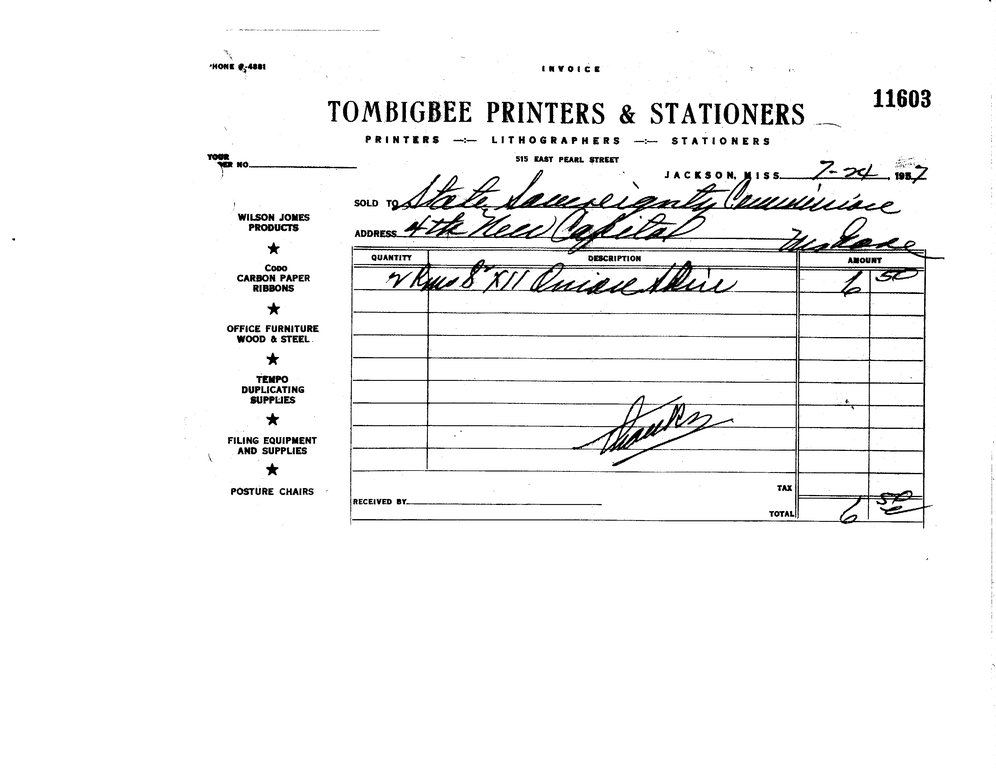 PHONE 2-4881
INVOICE
11603
TOMBIGBEE PRINTERS & STATIONERS
PRINTERS —:— LITHOGRAPHERS —:— STATIONERS
515 EAST PEARL STREET
YOUR
ER NO.
JACKSON, MISS. 7-24, 1957
SOLD TO State Sovereignty Commission
ADDRESS 4th New Capitol
QUANTITY DESCRIPTION AMOUNT
2 Rms 8" X 11 Onion Skin 6 50
WILSON JONES
PRODUCTS
★
CODO
CARBON PAPER
RIBBONS
★
OFFICE FURNITURE
WOOD & STEEL
★
TEMPO
DUPLICATING
SUPPLIES
★
FILING EQUIPMENT
AND SUPPLIES
★
POSTURE CHAIRS
Thanks
TAX
RECEIVED BY
TOTAL 6 50